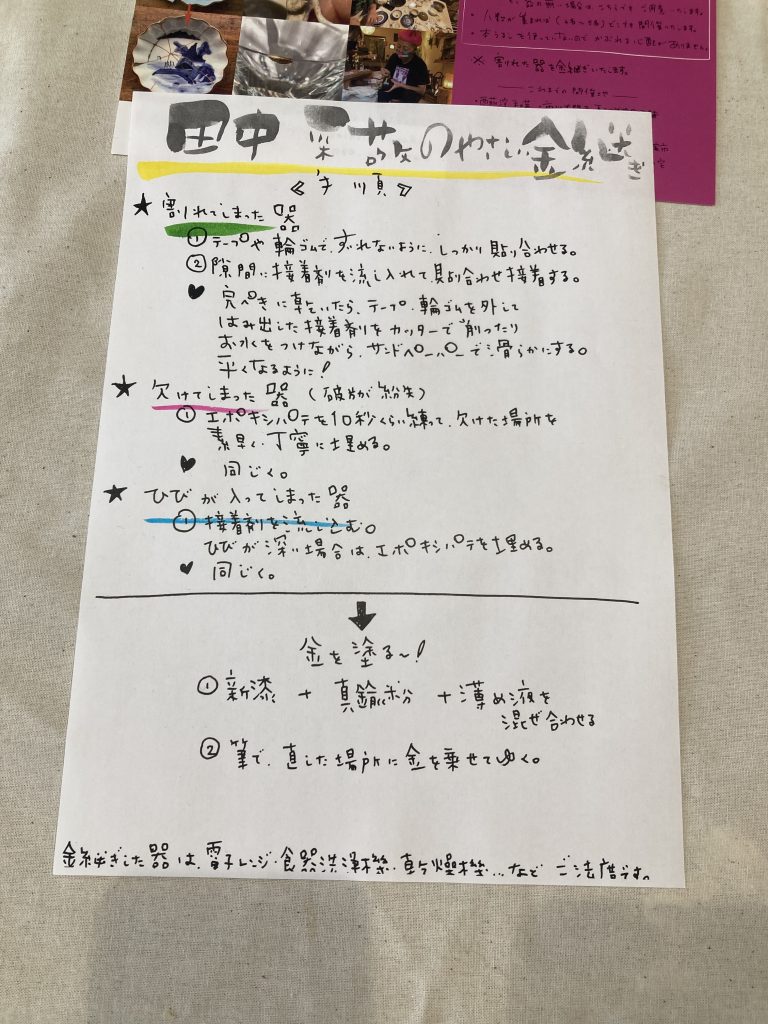 ・人数が集まれば
※ 割れた器を金継ぎいたします。
これまでの開催地
田中 菜散のやさしい金継ぎ
手順
★ 割れてしまった器
① テープや輪ゴムで、ずれないように、しっかり貼り合わせる。
② 隙間に接着剤を流し入れて、貼り合わせ接着する。
♥ 完ぺきに乾いたら、テープ・輪ゴムを外して
はみ出した接着剤をカッターで削ったり
お水をつけながら、サンドペーパーで滑らかにする。
平くなるように!
★ 欠けてしまった器 (破片が紛失)
① エポキシパテを10秒くらい練って、欠けた場所を
素早く、丁寧に埋める。
♥ 同じく。
★ ひびが入ってしまった器
① 接着剤を流し込む。
ひびが深い場合は、エポキシパテを埋める。
♥ 同じく。
↓
金を塗る〜!
① 新漆 + 真鍮粉 + 薄め液を
混ぜ合わせる
② 筆で、直した場所に金を乗せてゆく。
金継ぎした器は、電子レンジ・食器洗浄機・乾燥機...など ご法度です。